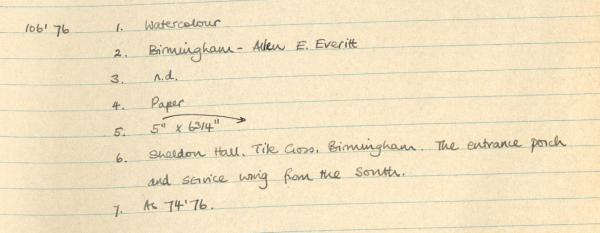 106'76 1. Watercolour
2. Birmingham - Allen E. Everitt
3. n.d.
4. Paper
5. 5" x 6 3/4"
6. Sheldon Hall, Tile Cross, Birmingham. The entrance porch
and service wing from the South.
7. As 74'76.